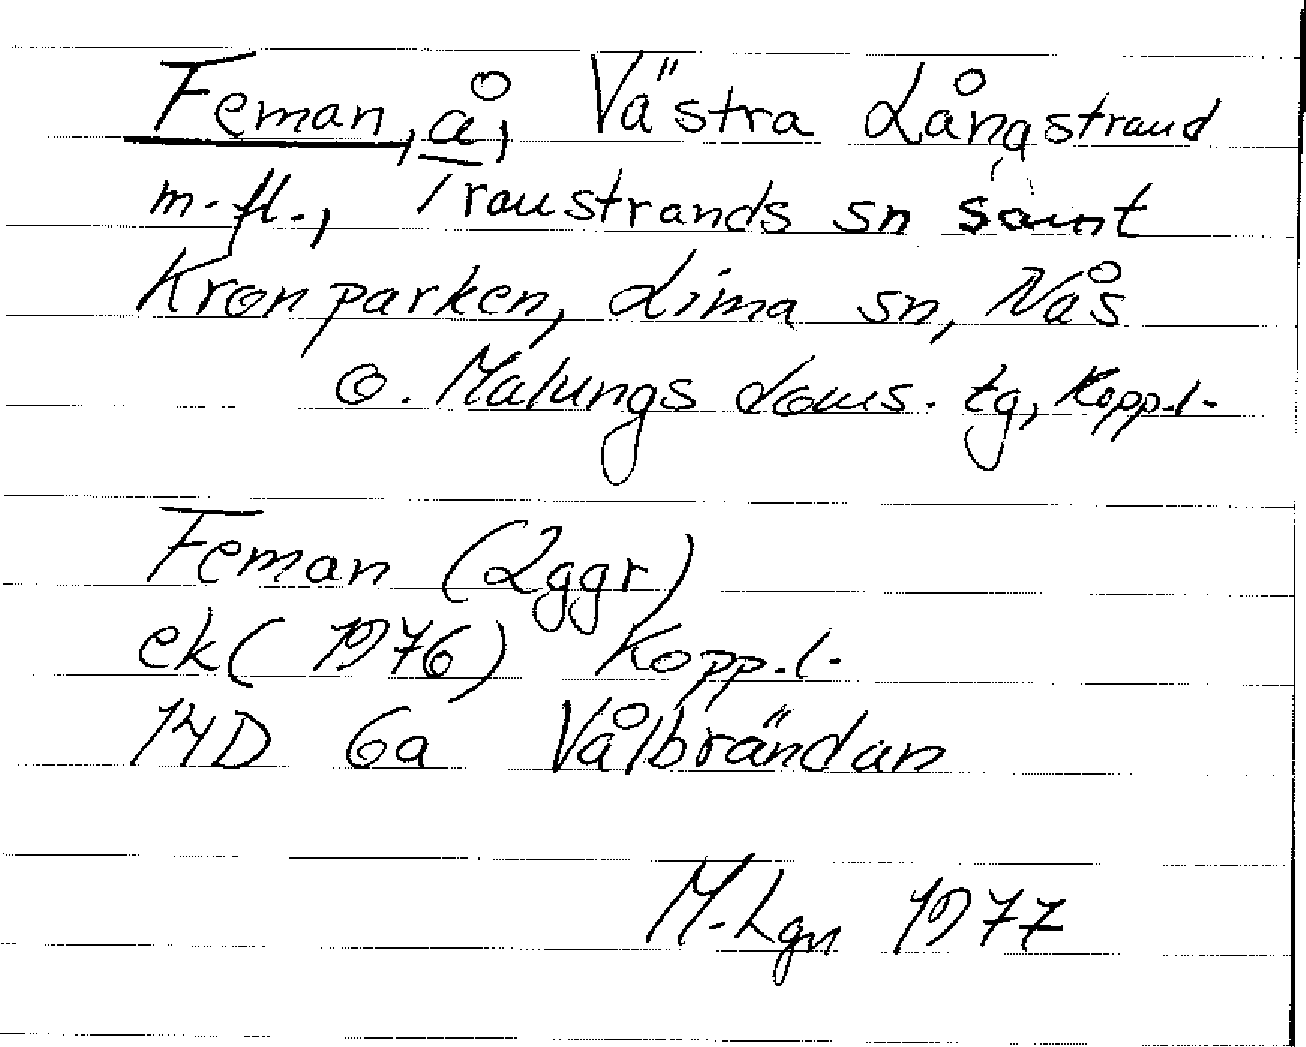 Feman, å, Västra Långstrand
m.fl., Transtrands sn samt
Kronparken, Lima sn, Nås
o. Malungs doms. tg, Kopp.l.
Feman (2ggr)
ek (1976) Kopp.l.
14D 6a Vålbrändan
M.Lgn 1977